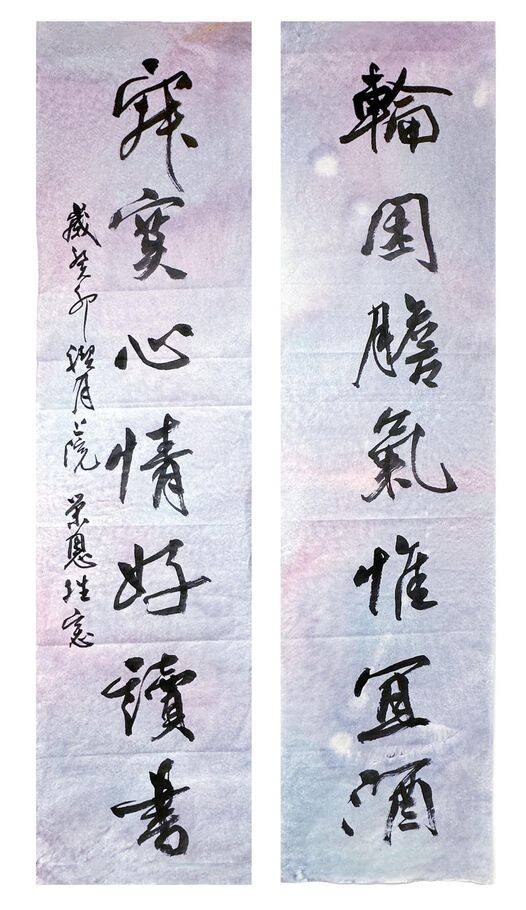 輪囷膽氣惟宜酒
寂寞心情好讀書
歲癸卯月上浣 榮恩